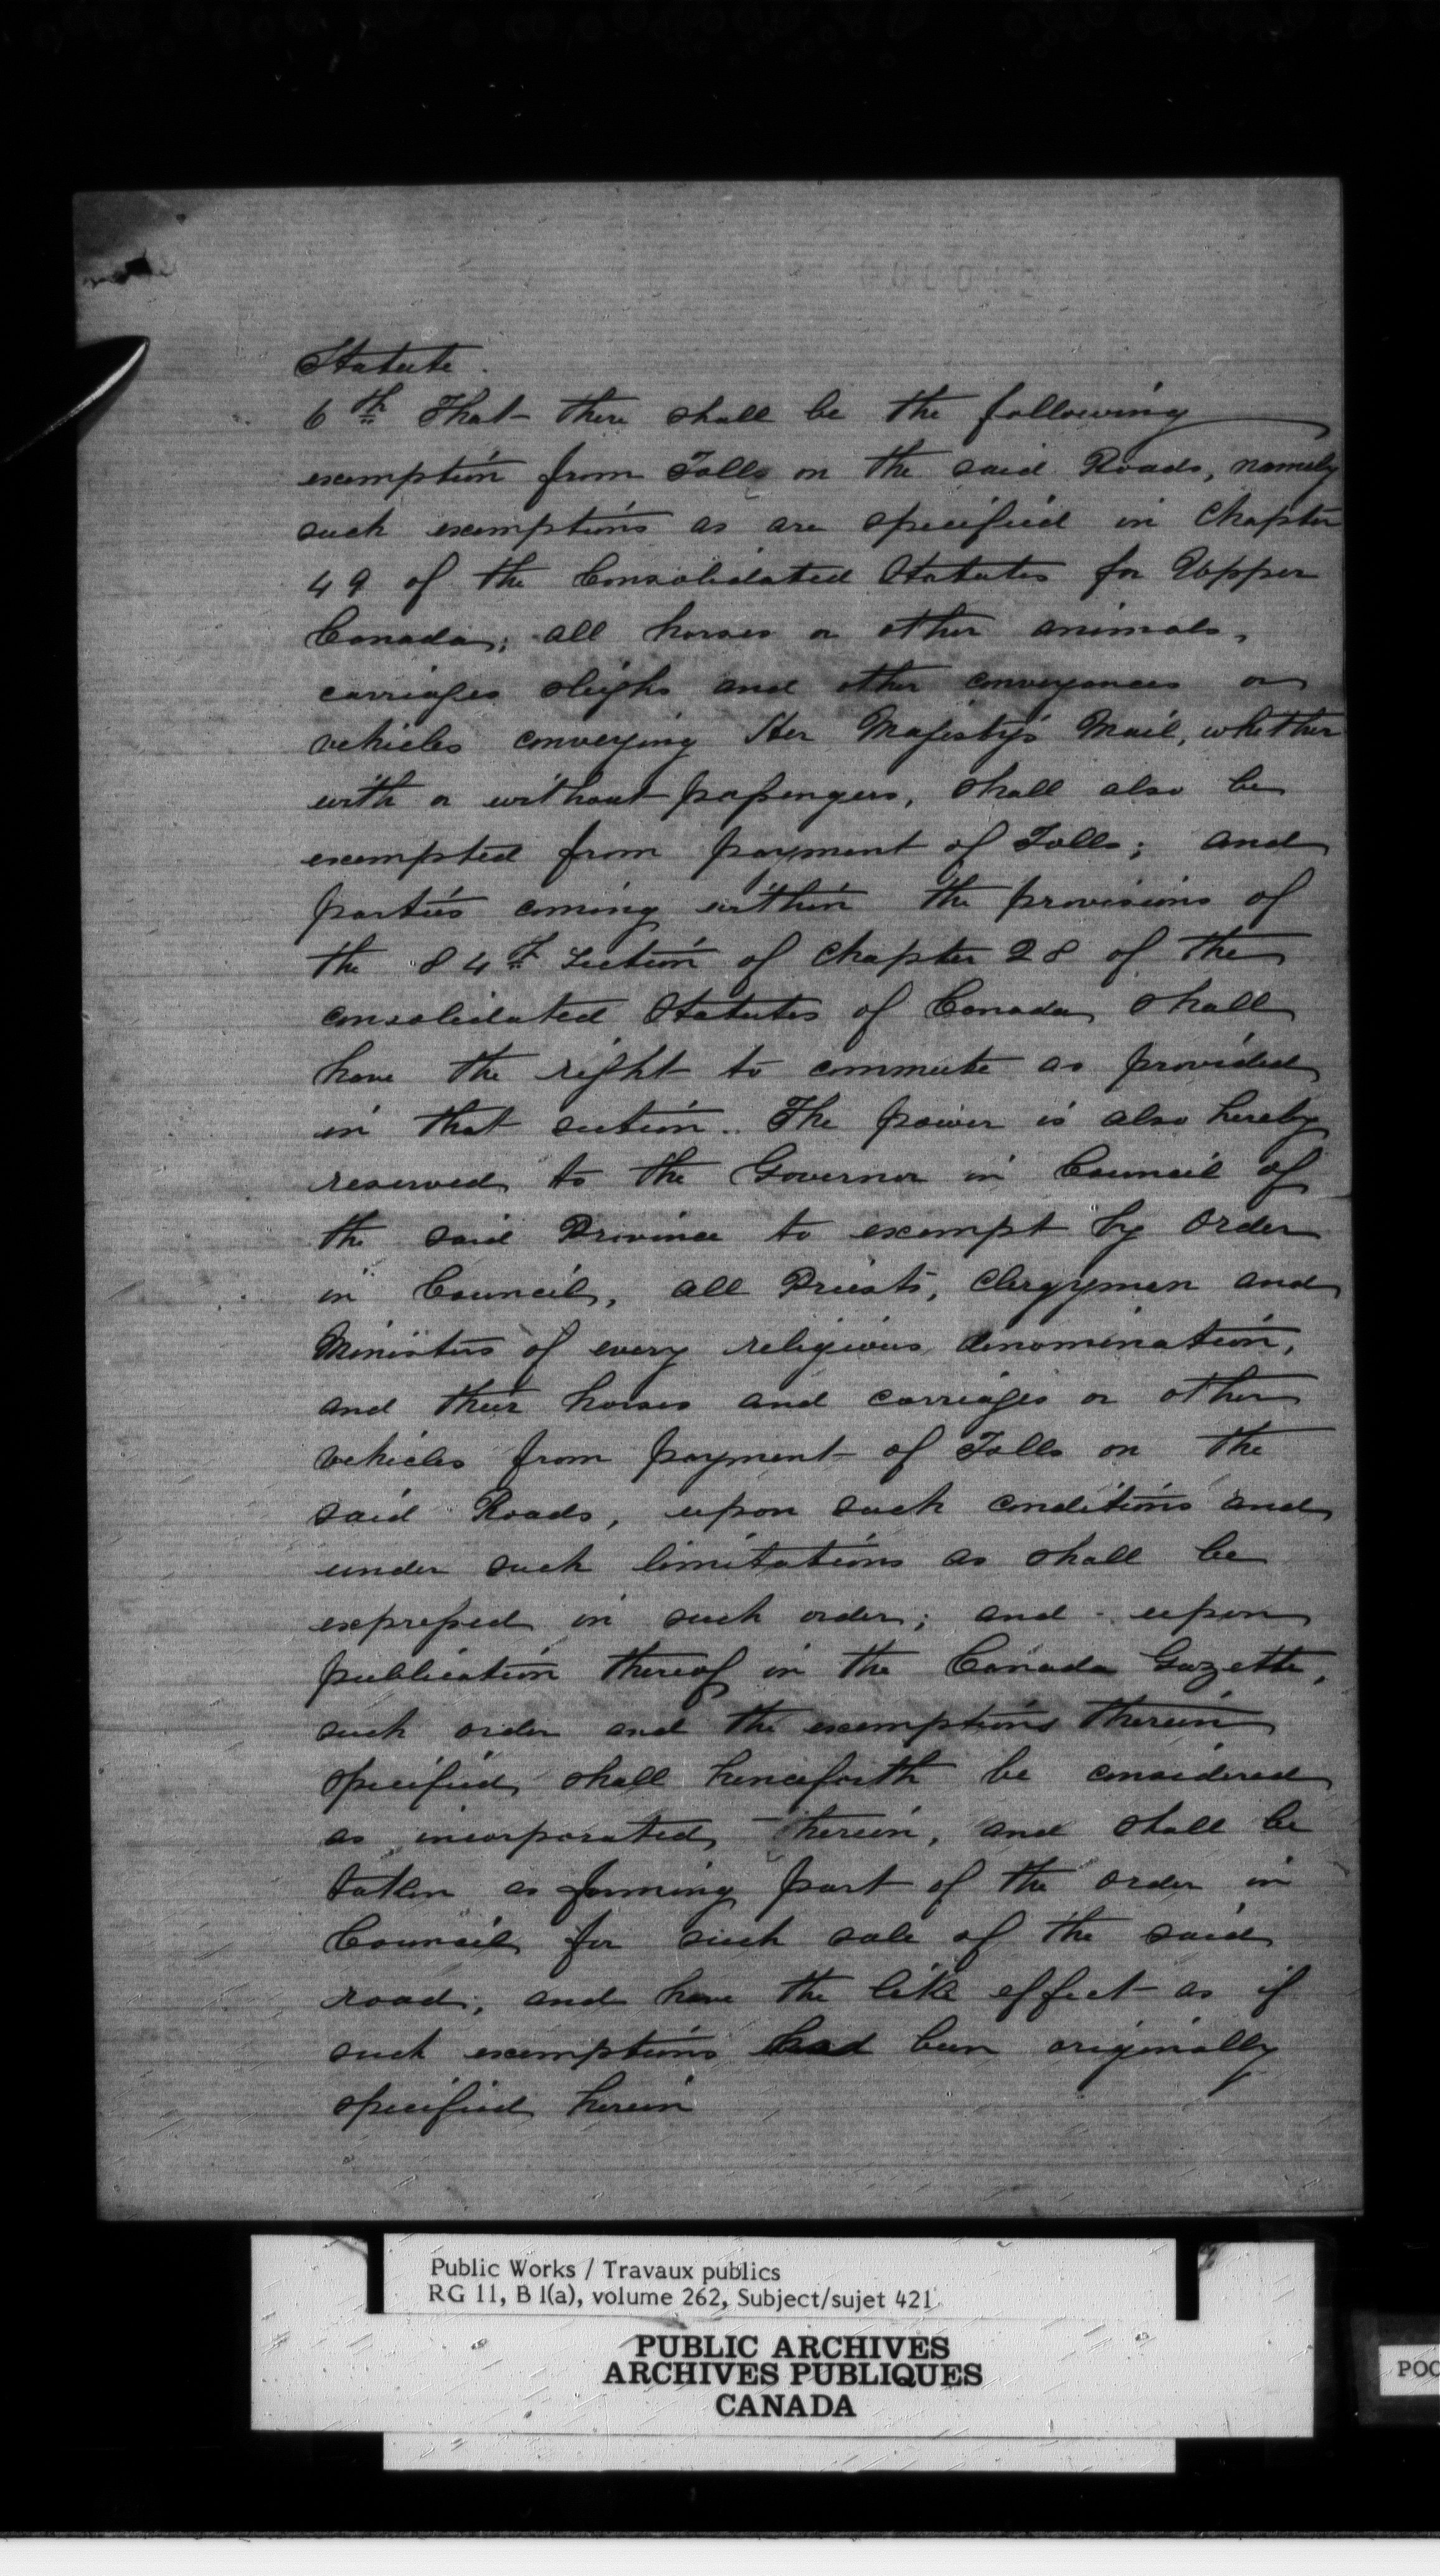 Statute.
6th That there shall be the following
exemption from Tolls on the said Roads, namely
such exemptions as are specified in Chapter
49 of the Consolidated Statutes for Upper
Canada; all horses or other animals,
carriages sleighs and other conveyances or
vehicles conveying Her Majesty's Mail, whether
with or without passengers, shall also be
exempted from payment of Tolls; and
parties coming within the provisions of
the 84th Section of Chapter 28 of the
consolidated Statutes of Canada shall
have the right to commute as provided
in that section. The power is also hereby
reserved to the Governor in Council of
the said Province to exempt by Order
in Council, all Priests, Clergymen and
Ministers of every religious denomination,
and their horses and carriages or other
vehicles from payment of Tolls on the
said Roads, upon such conditions and
under such limitations as shall be
expressed in such order; and upon
publication thereof in the Canada Gazette,
such order and the exemptions therein
specified shall henceforth be considered
as incorporated herein, and shall be
taken as forming part of the Order in
Council for such sale of the said
road; and have the like effect as if
such exemptions had been originally
specified herein
Public Works / Travaux publics
RG 11, B 1(a), volume 262, Subject/sujet 421
PUBLIC ARCHIVES
ARCHIVES PUBLIQUES
CANADA